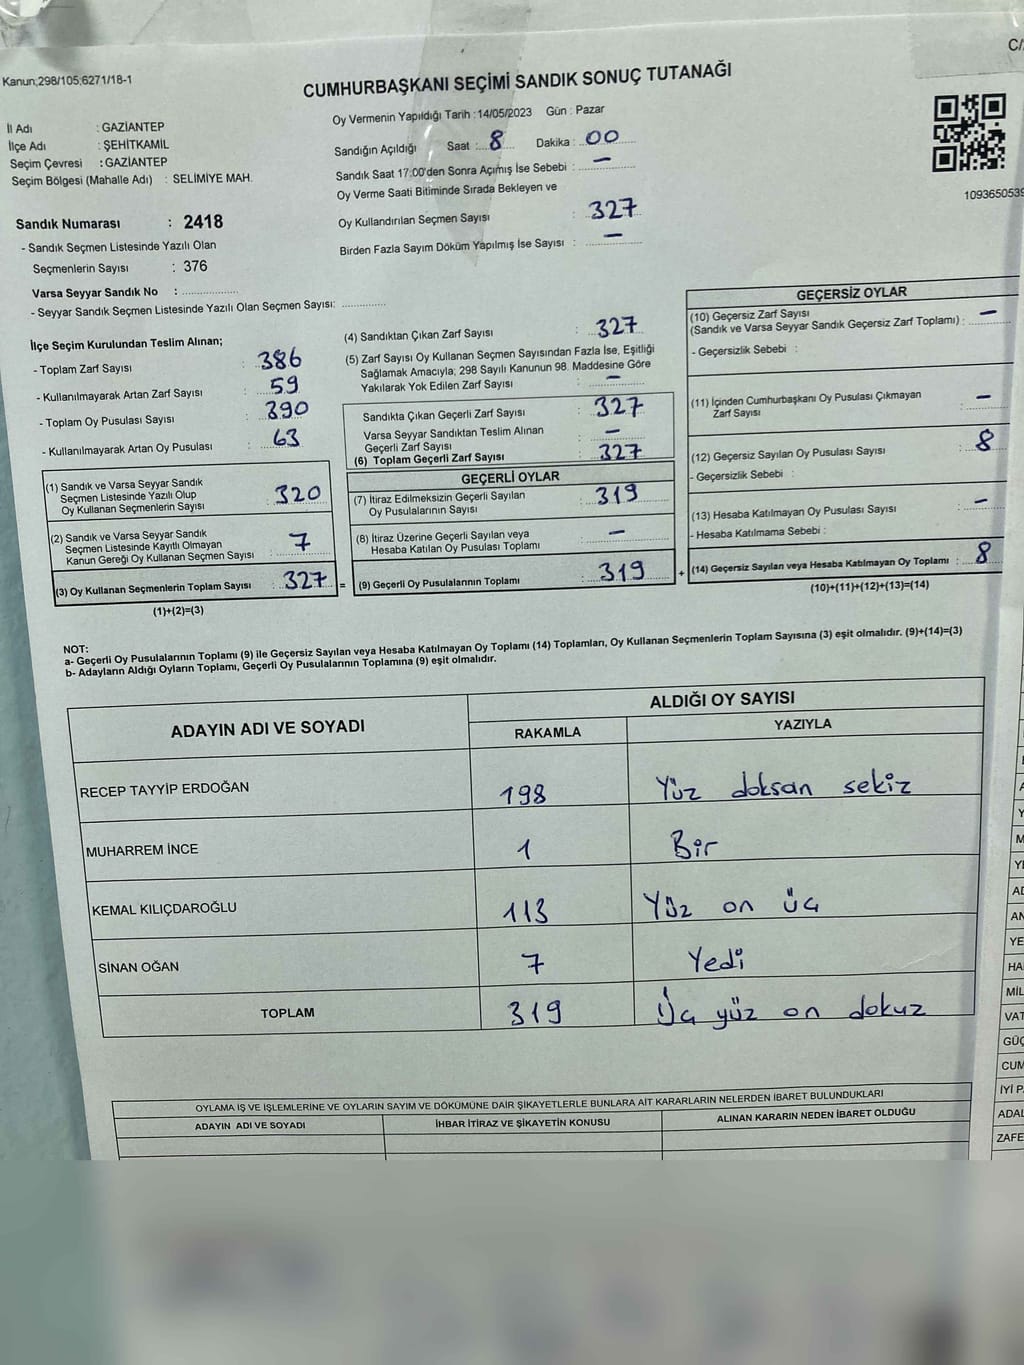 C/
Kanun;298/105;6271/18-1
CUMHURBAŞKANI SEÇİMİ SANDIK SONUÇ TUTANAĞI
İl Adı : GAZİANTEP
İlçe Adı : ŞEHİTKAMİL
Seçim Çevresi : GAZİANTEP
Seçim Bölgesi (Mahalle Adı) : SELİMİYE MAH.
Oy Vermenin Yapıldığı Tarih :14/05/2023 Gün : Pazar
Sandığın Açıldığı Saat : 8 Dakika : 00
Sandık Saat 17:00'den Sonra Açımış İse Sebebi : —
Oy Verme Saati Bitiminde Sırada Bekleyen ve
Oy Kullandırılan Seçmen Sayısı : 327
Birden Fazla Sayım Döküm Yapılmış İse Sayısı : —
1093650539
Sandık Numarası : 2418
- Sandık Seçmen Listesinde Yazılı Olan
Seçmenlerin Sayısı : 376
Varsa Seyyar Sandık No :
- Seyyar Sandık Seçmen Listesinde Yazılı Olan Seçmen Sayısı:
İlçe Seçim Kurulundan Teslim Alınan;
- Toplam Zarf Sayısı : 386
- Kullanılmayarak Artan Zarf Sayısı : 59
- Toplam Oy Pusulası Sayısı : 390
- Kullanılmayarak Artan Oy Pusulası : 63
(1) Sandık ve Varsa Seyyar Sandık
Seçmen Listesinde Yazılı Olup
Oy Kullanan Seçmenlerin Sayısı : 320
(2) Sandık ve Varsa Seyyar Sandık
Seçmen Listesinde Kayıtlı Olmayan
Kanun Gereği Oy Kullanan Seçmen Sayısı : 7
(3) Oy Kullanan Seçmenlerin Toplam Sayısı : 327 =
(1)+(2)=(3)
(4) Sandıktan Çıkan Zarf Sayısı : 327
(5) Zarf Sayısı Oy Kullanan Seçmen Sayısından Fazla İse, Eşitliği
Sağlamak Amacıyla; 298 Sayılı Kanunun 98. Maddesine Göre
Yakılarak Yok Edilen Zarf Sayısı : —
Sandıkta Çıkan Geçerli Zarf Sayısı : 327
Varsa Seyyar Sandıktan Teslim Alınan
Geçerli Zarf Sayısı : —
(6) Toplam Geçerli Zarf Sayısı : 327
GEÇERLİ OYLAR
(7) İtiraz Edilmeksizin Geçerli Sayılan
Oy Pusulalarının Sayısı : 319
(8) İtiraz Üzerine Geçerli Sayılan veya
Hesaba Katılan Oy Pusulası Toplamı : —
(9) Geçerli Oy Pusulalarının Toplamı : 319 +
GEÇERSİZ OYLAR
(10) Geçersiz Zarf Sayısı
(Sandık ve Varsa Seyyar Sandık Geçersiz Zarf Toplamı) : —
- Geçersizlik Sebebi :
(11) İçinden Cumhurbaşkanı Oy Pusulası Çıkmayan
Zarf Sayısı : —
(12) Geçersiz Sayılan Oy Pusulası Sayısı : 8
- Geçersizlik Sebebi :
(13) Hesaba Katılmayan Oy Pusulası Sayısı : —
- Hesaba Katılmama Sebebi :
(14) Geçersiz Sayılan veya Hesaba Katılmayan Oy Toplamı : 8
(10)+(11)+(12)+(13)=(14)
NOT:
a- Geçerli Oy Pusulalarının Toplamı (9) ile Geçersiz Sayılan veya Hesaba Katılmayan Oy Toplamı (14) Toplamları, Oy Kullanan Seçmenlerin Toplam Sayısına (3) eşit olmalıdır. (9)+(14)=(3)
b- Adayların Aldığı Oyların Toplamı, Geçerli Oy Pusulalarının Toplamına (9) eşit olmalıdır.
ADAYIN ADI VE SOYADI ALDIĞI OY SAYISI
RAKAMLA YAZIYLA
RECEP TAYYİP ERDOĞAN 198 Yüz doksan sekiz
MUHARREM İNCE 1 Bir
KEMAL KILIÇDAROĞLU 113 Yüz on üç
SİNAN OĞAN 7 Yedi
TOPLAM 319 Üç yüz on dokuz
OYLAMA İŞ VE İŞLEMLERİNE VE OYLARIN SAYIM VE DÖKÜMÜNE DAİR ŞİKAYETLERLE BUNLARA AİT KARARLARIN NELERDEN İBARET BULUNDUKLARI
ADAYIN ADI VE SOYADI İHBAR İTİRAZ VE ŞİKAYETİN KONUSU ALINAN KARARIN NEDEN İBARET OLDUĞU
YE
HA
MİL
VAT
GÜÇ
CUM
İYİ P
ADAL
ZAFE